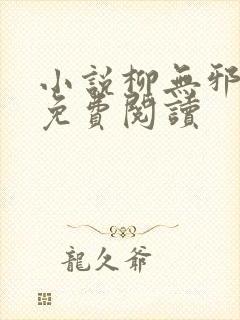 小說柳無邪
免費閱讀
龍久爺